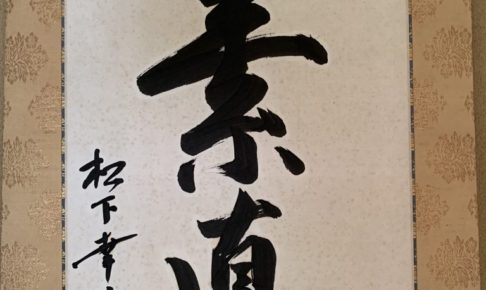 素直
松下幸